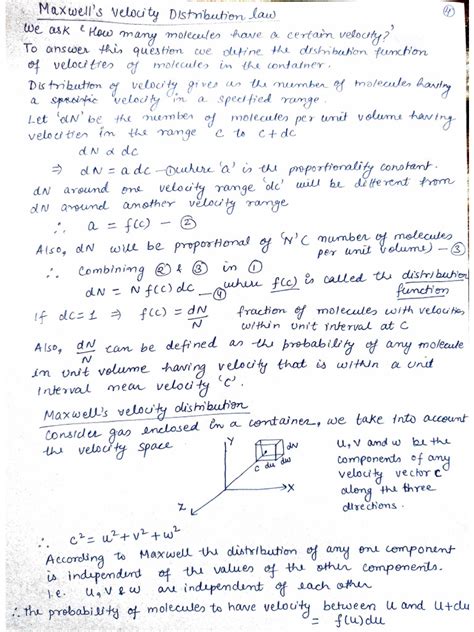 Maxwell's Velocity Distribution law
4
We ask 'How many molecules have a certain velocity?'
To answer this question we define the distribution function
of velocities of molecules in the container.
Distribution of velocity gives us the number of molecules having
a specific velocity in a specified range.
Let 'dN' be the number of molecules per unit volume having
velocities in the range c to c+dc
dN α dc
⇒ dN = a dc —① where 'a' is the proportionality constant.
dN around one velocity range 'dc' will be different from
dN around another velocity range
∴ a = f(c) — ②
Also, dN will be proportional of 'N' ( number of molecules
per unit volume) — ③
∴ Combining ② & ③ in ①
dN = N f(c) dc —④ where f(c) is called the distribution
function
If dc=1 ⇒ f(c) = dN/N fraction of molecules with velocities
within unit interval at c
Also, dN/N can be defined as the probability of any molecule
in unit volume having velocity that is within a unit
interval near velocity 'c'.
Maxwell's velocity distribution
Consider gas enclosed in a container, we take into account
the velocity space
Y
dN
c du dw
X
Z
u, v and w be the
components of any
velocity vector c
along the three
directions.
∴ c² = u² + v² + w²
According to Maxwell the distribution of any one component
is independent of the values of the other components.
i.e. u, v & w are independent of each other
∴ the probability of molecules to have velocity between u and u+du
= f(u)du